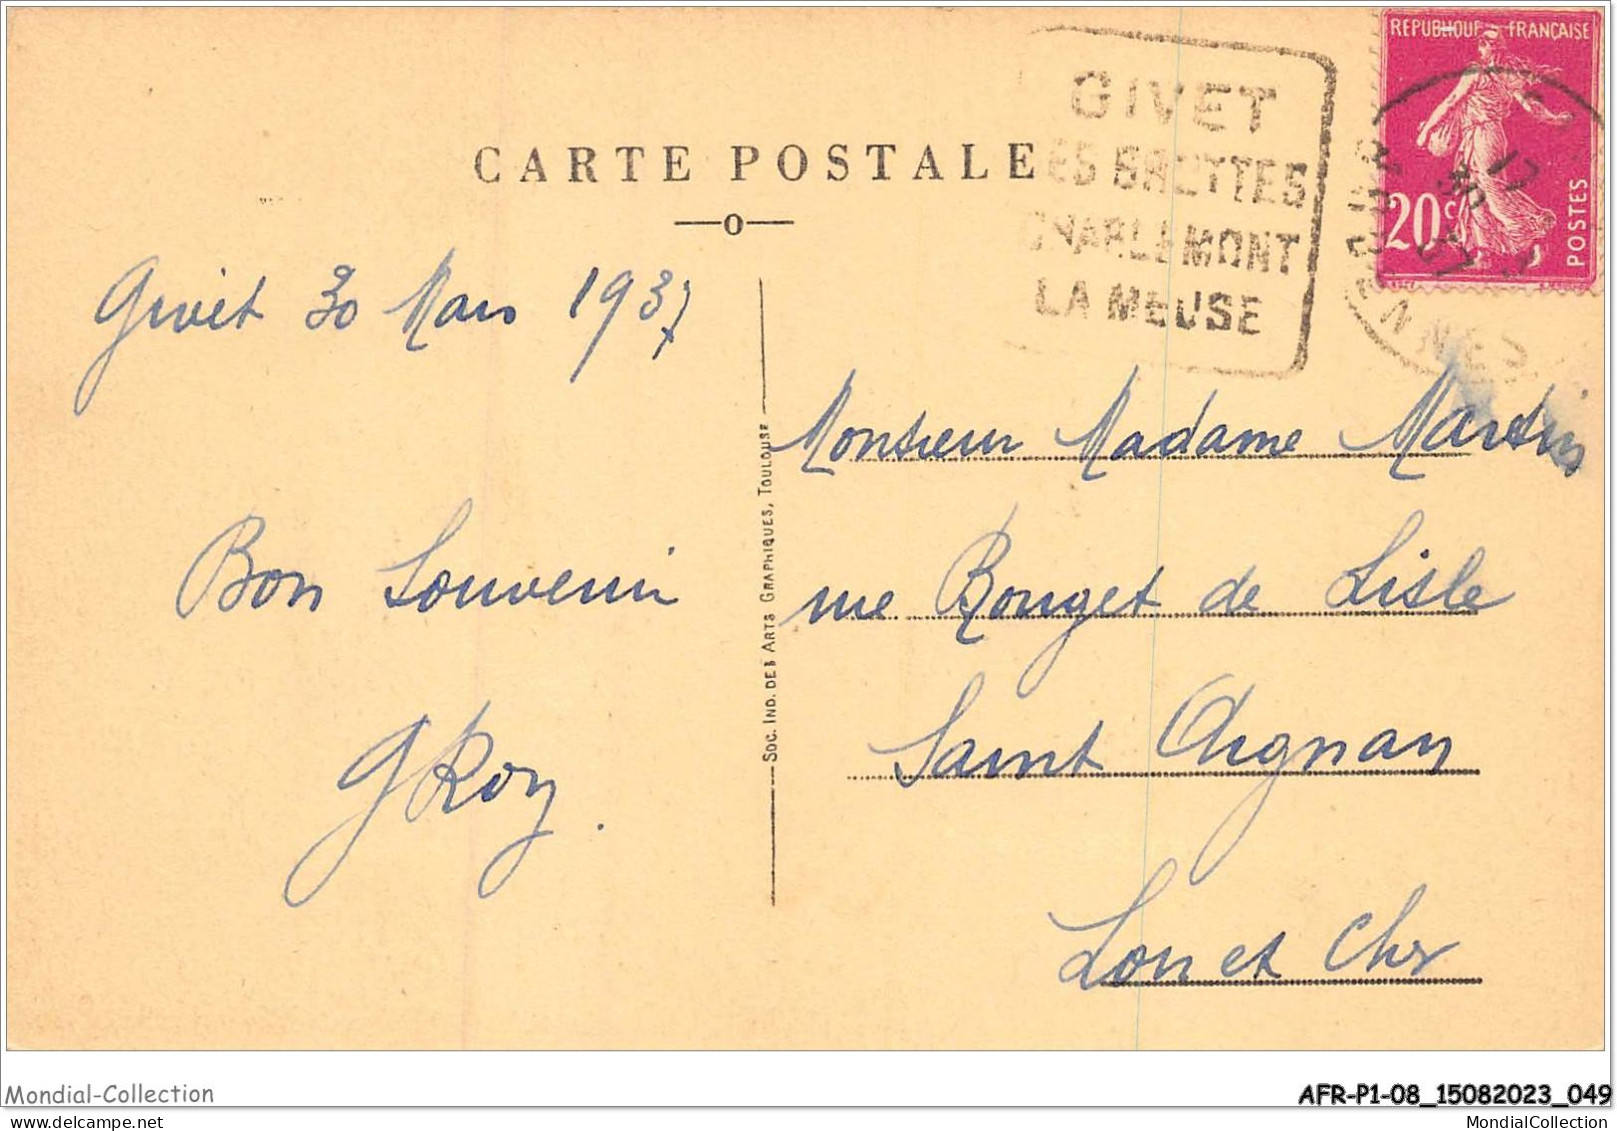 CARTE POSTALE
GIVET
GROTTES
CHARLEMONT
LA MEUSE
REPUBLIQUE FRANÇAISE
20c
POSTES
12
30
37
ARDENNES
Givet 30 Mars 1937
Bon Souvenir
GRoy.
Monsieur Madame Martin
rue Rouget de Lisle
Saint Aignan
Loir et Cher
Soc. Ind. des Arts Graphiques, Toulouse
Mondial-Collection
AFR-P1-08_15082023_049
MondialCollection.com